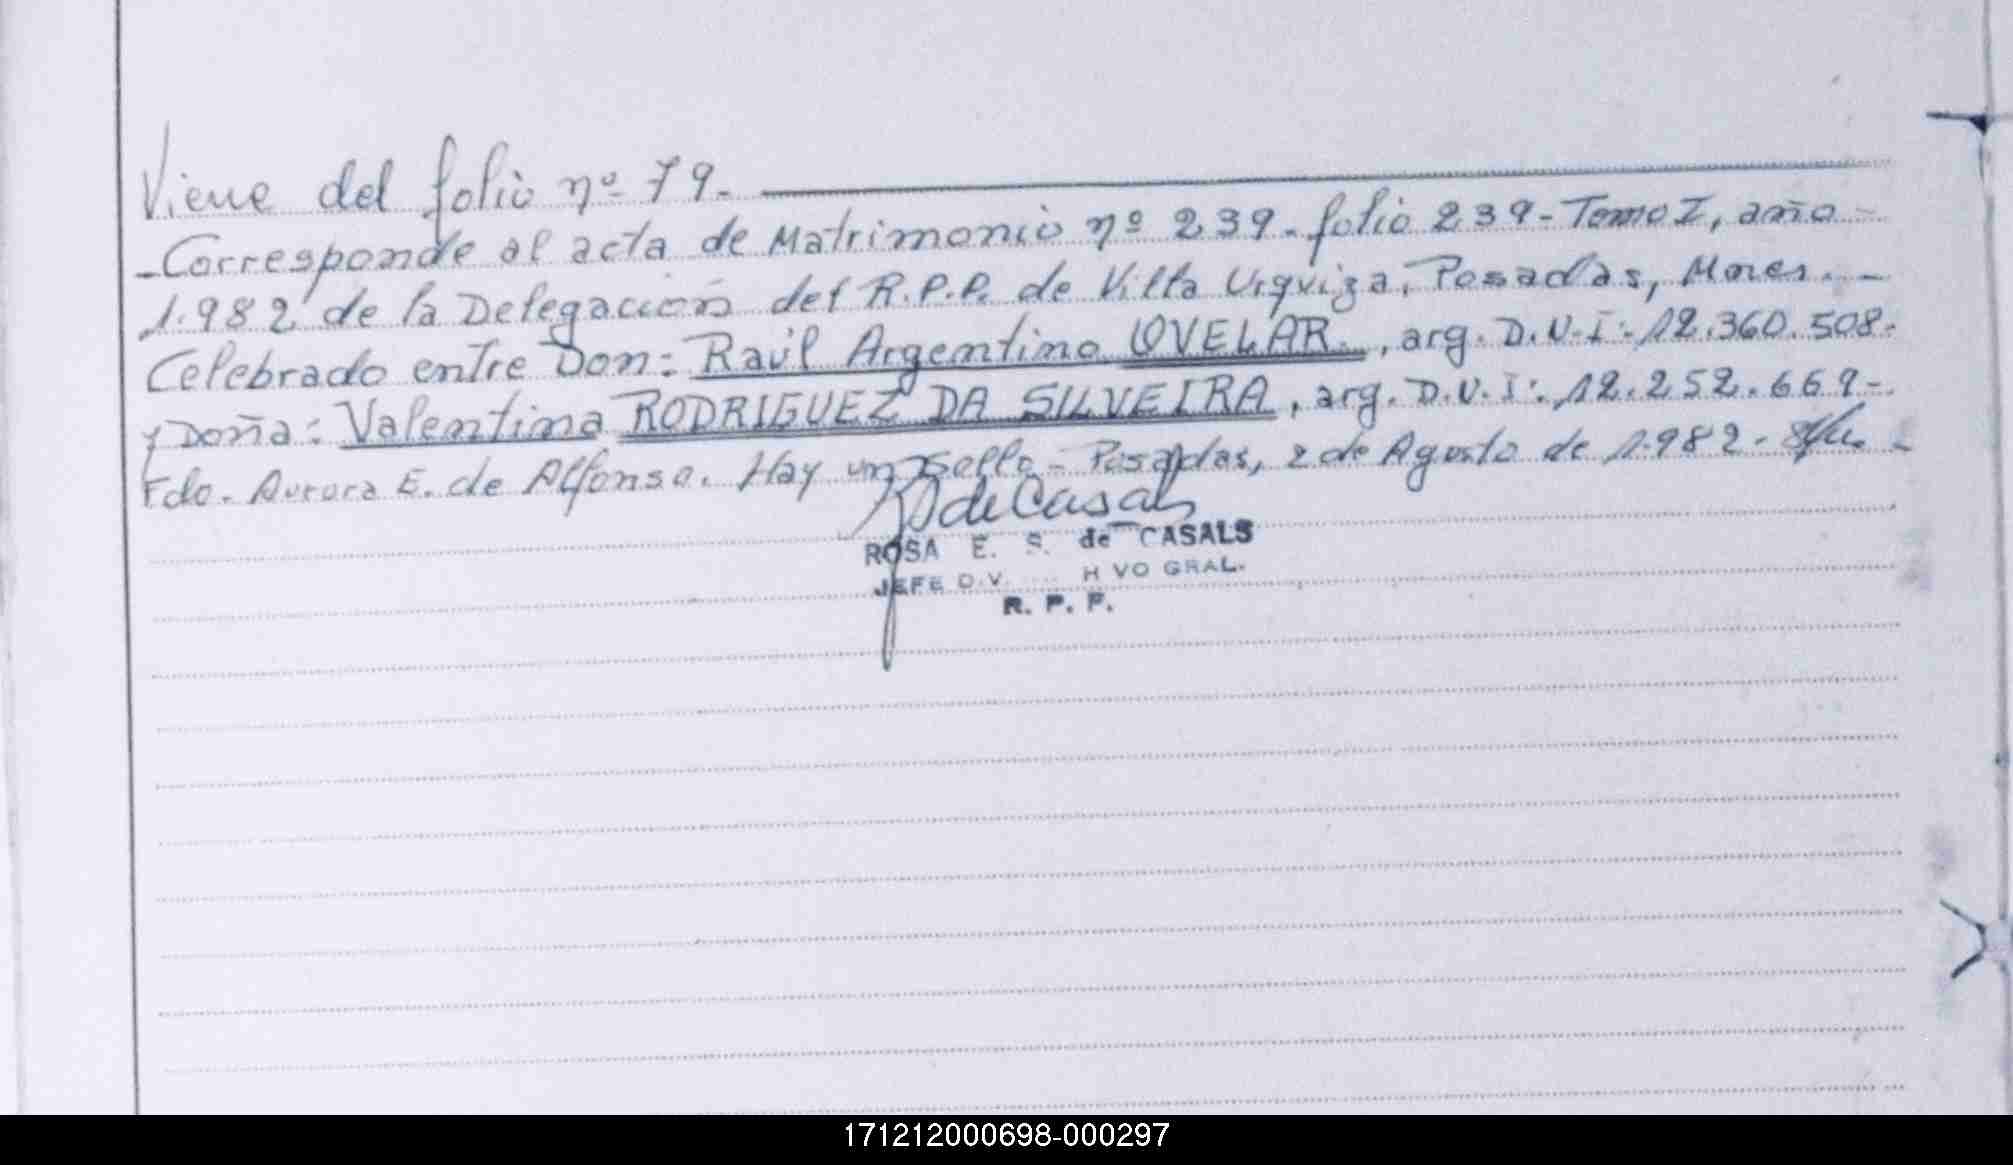 Viene del folio nº 79.
- Corresponde al acta de Matrimonio nº 239. folio 239 - Tomo I, año -
1.982 de la Delegación del R.P.P. de Villa Urquiza, Posadas, Mnes. -
Celebrado entre Don: Raúl Argentino OVELAR, arg. D.N.I: 12.360.508.
y Doña: Valentina RODRIGUEZ DA SILVEIRA, arg. D.N.I: 12.252.669 -
Fdo. Aurora E. de Alfonso. Hay un sello - Posadas, 2 de Agosto de 1.982. -
de Casals
ROSA E. S. de CASALS
JEFE DIV. H VO GRAL.
R. P. P.
171212000698-000297